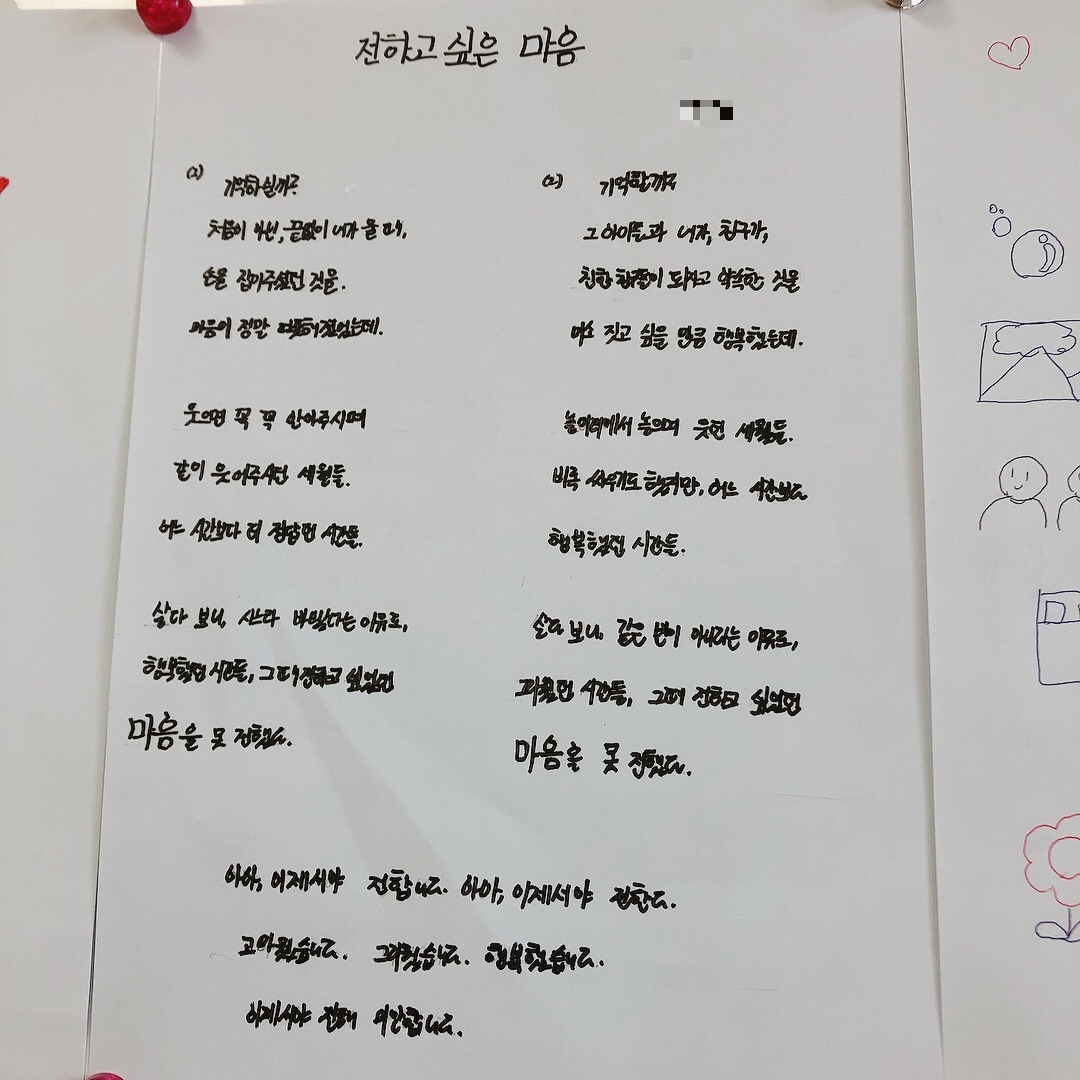 전하고 싶은 마음
(1) 기억하실까?
처음이 아닌, 끝없이 내가 울 때,
손을 잡아주셨던 것을.
마음이 정말 따뜻해졌었는데.
웃으면 꼭 꼭 안아주시며
같이 웃어주시던 세월들.
어느 시간보다 더 정답던 시간들.
살다 보니, 사느라 바빴다는 이유로,
행복했던 시간들, 그때 전하고 싶었던
마음을 못 전했다.
(2) 기억할까?
그 아이들과 내가, 친구가,
친한 친구들이 되자고 약속한 것을
미소 짓고 싶을 만큼 행복했는데.
놀이터에서 놀으며 웃던 세월들.
비록 싸우기도 했지만, 어느 시간보다
행복했던 시간들.
살다 보니, 같은 반이 아니라는 이유로,
시간들, 그때 전하고 싶었던
마음을 못 전했다.
아아, 이제서야 전합니다. 아아, 이제서야 전한다.
고마웠습니다. 그리웠습니다. 행복했습니다.
이제서야 전해 미안합니다.